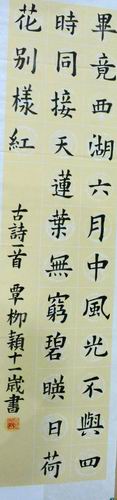 畢竟西湖六月中風光不與四
時同接天蓮葉無窮碧暎日荷
花別樣紅
古詩一首 覃柳穎十一歲書